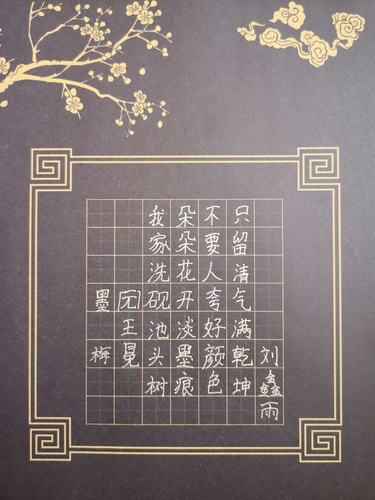 墨梅
[元]王冕
我家洗砚池头树
朵朵花开淡墨痕
不要人夸好颜色
只留清气满乾坤
刘鑫雨